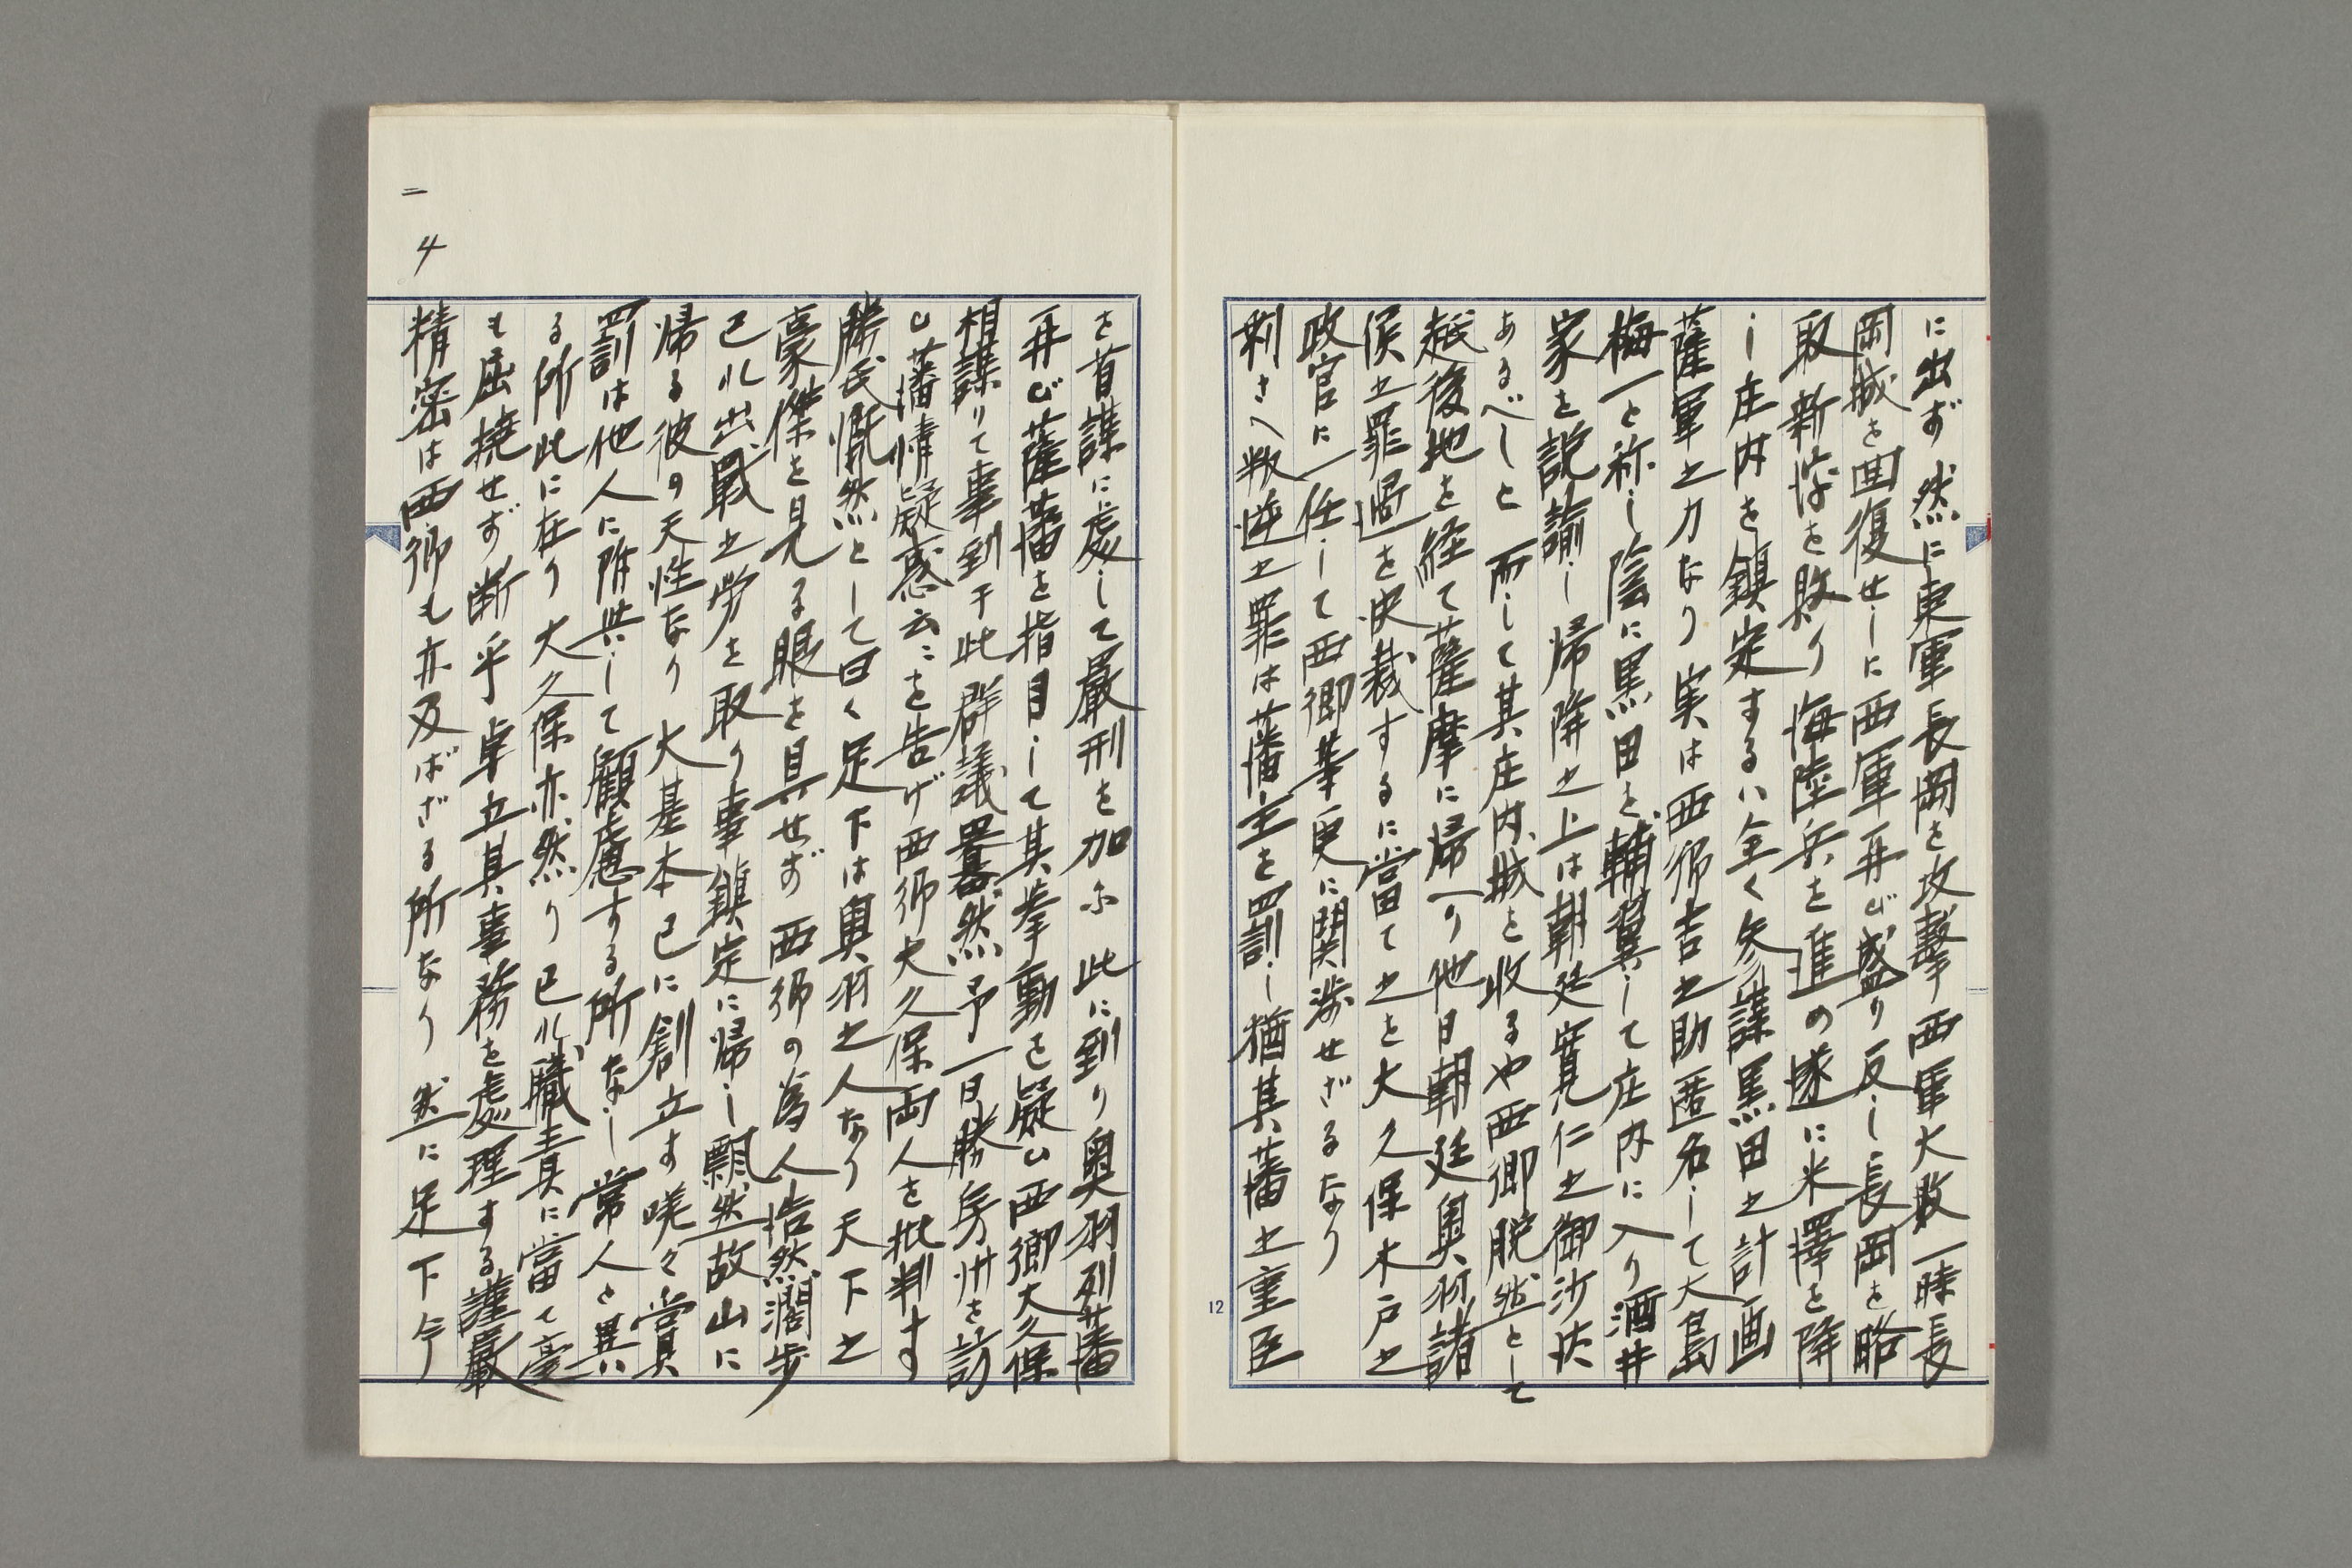 に出ず然に東軍長岡を攻撃西軍大敗一時長
岡城を囬復せしに西軍再び盛り反し長岡を略
取新潟を敗り海陸兵を進め遂に米澤を降
し庄内を鎮定するハ全く参謀黒田之計画
薩軍之力なり実は西郷吉之助匿名して大島
梅一と称し陰に黒田を輔翼して庄内に入り酒井
家を説諭し帰降之上は朝廷寛仁之御沙汰
あるべしと而して其庄内城を收るや西郷脱然として
越後地を経て薩摩に帰一り他日朝廷奥羽諸
侯之罪過を決裁するに當て之を大久保木戸之
政官に一任して西郷輩更に関渉せざるなり
剰さへ叛逆之罪は藩主を罰し猶其藩之重臣
12
を首謀に處して嚴刑を加ふ此に到り奥羽列藩
再び薩藩を指目して其挙動を疑ひ西郷大久保
相謀りて事到于此群議囂然予一日勝房州を訪
ひ藩情疑惑云々を告げ西郷大久保両人を批判す
勝氏慨然として曰く足下は奥羽之人なり天下之
豪傑を見る眼を具せず西郷の為人浩然濶歩
己れ出戰之労を取り事鎮定に帰し飄然故山に
帰る彼の天性なり大基本已に創立す咲々賞
罰は他人に附與して顧慮する所なし常人と異
る所此に在り大久保亦然り己れ職責に當て毫
も屈撓せず断乎卓立其事務を處理する謹嚴
精密は西郷も亦及ばざる所なり然に足下今
二
4